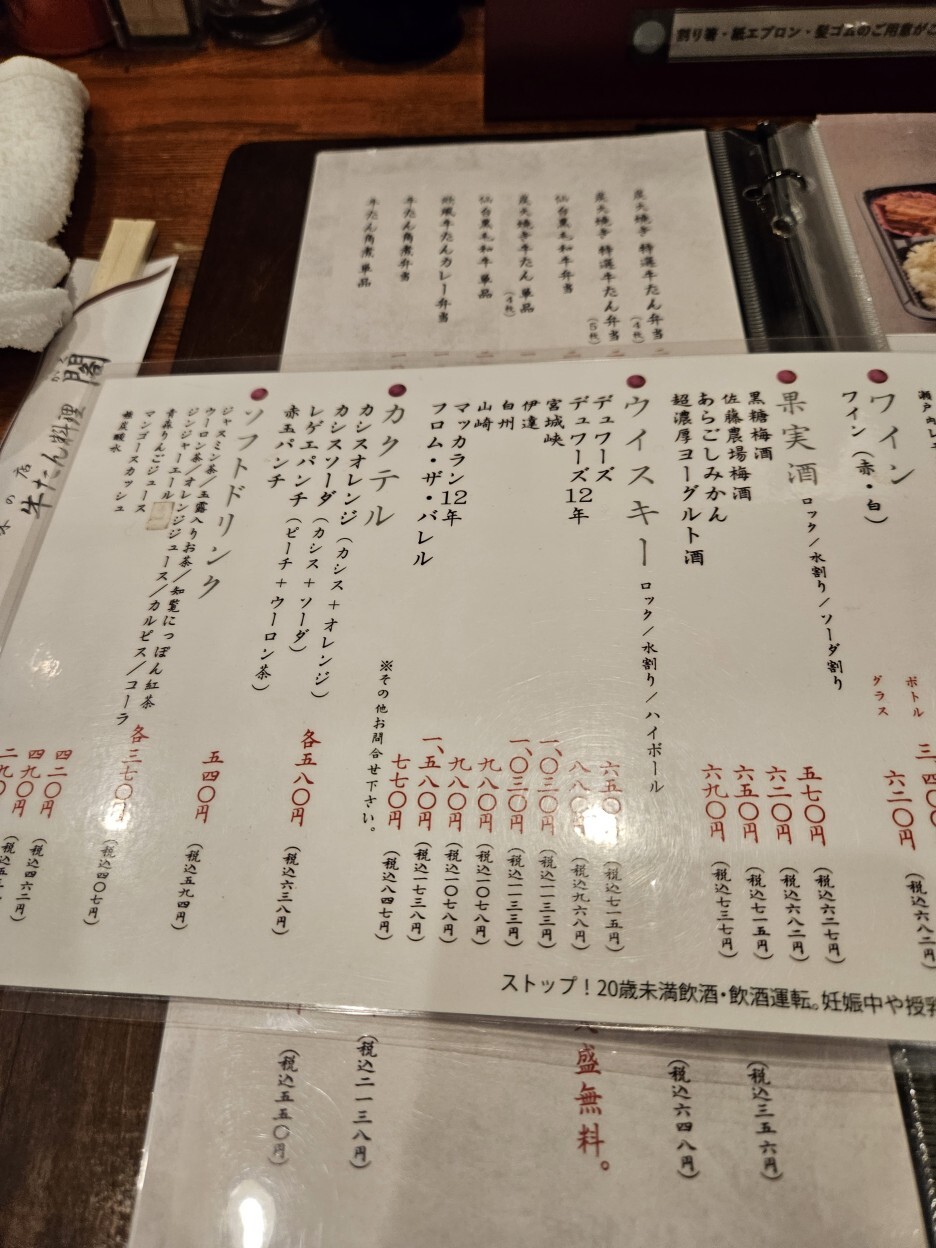 割り箸・紙エプロン・髪ゴムのご用意がご
炭火焼き 特選牛たん弁当(4枚)
炭火焼き 特選牛たん弁当(5枚)
仙台黒毛和牛弁当
炭火焼き牛たん 単品(4枚)
仙台黒毛和牛 単品
牛たんカレー弁当
牛たん角煮弁当
牛たん角煮 単品
閣
牛たん料理
店
の
ワイン
ワイン(赤・白)
ボトル
グラス 六二〇円 (税込六八二円)
果実酒 ロック/水割り/ソーダ割り
黒糖梅酒 五七〇円 (税込六二七円)
佐藤農場梅酒 六二〇円 (税込六八二円)
あらごしみかん 六五〇円 (税込七一五円)
超濃厚ヨーグルト酒 六九〇円 (税込七三七円)
ウイスキー ロック/水割り/ハイボール
デュワーズ 六五〇円 (税込七一五円)
デュワーズ12年 八八〇円 (税込九六八円)
宮城峡 一、〇三〇円 (税込一一三三円)
伊達 一、〇三〇円 (税込一一三三円)
白州 九八〇円 (税込一〇七八円)
山崎 九八〇円 (税込一〇七八円)
マッカラン12年 一、五八〇円 (税込一七三八円)
フロム・ザ・バレル 七七〇円 (税込八四七円)
※その他お問合せ下さい。
カクテル
カシスオレンジ(カシス+オレンジ)
カシスソーダ(カシス+ソーダ)
レゲエパンチ(ピーチ+ウーロン茶)
各五八〇円 (税込六三八円)
赤玉パンチ 五四〇円 (税込五九四円)
ソフトドリンク
ジャスミン茶/玉露入りお茶/知覧にっぽん紅茶
ウーロン茶/オレンジジュース/カルピス/コーラ
ジンジャーエール
各三七〇円 (税込四〇七円)
青森りんごジュース 四二〇円 (税込四六二円)
マンゴースカッシュ 四九〇円
二九〇
ストップ!20歳未満飲酒・飲酒運転。妊娠中や授乳
(税込三五六円)
(税込六四八円)
盛無料。
(税込二一三八円)
(税込五五〇円)